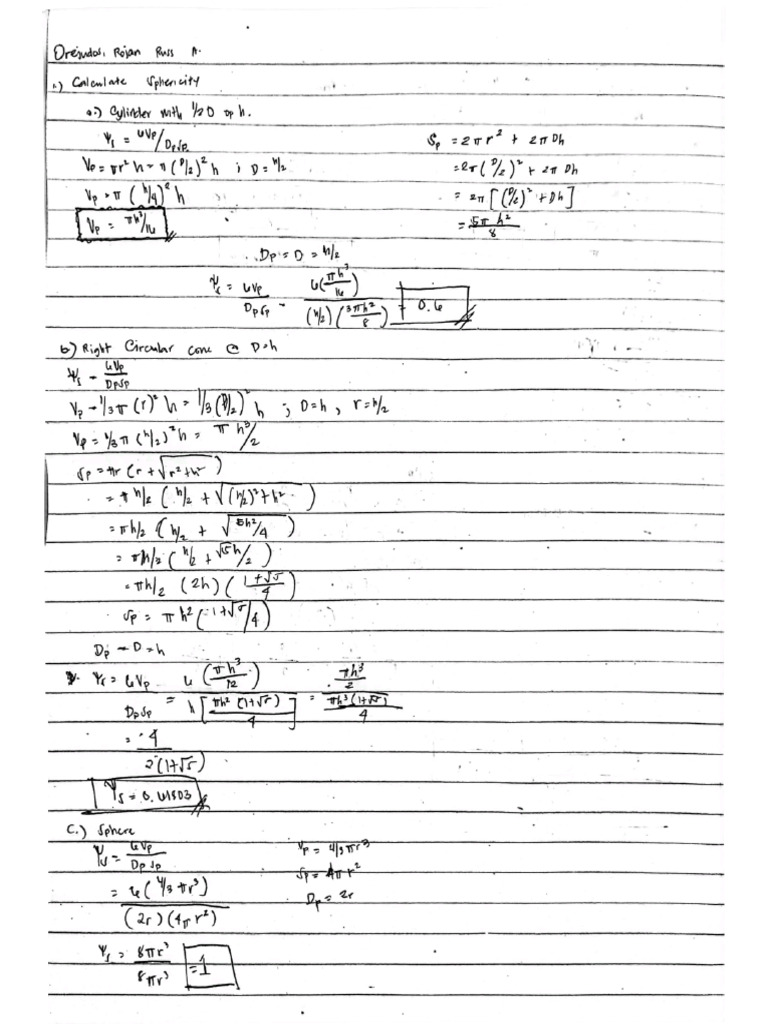 Orejudos, Rojan Russ A.
1.) Calculate Sphericity
a.) Cylinder with 1/2 D of h.
Ψs = 6Vp/DpSp
Vp = πr² h = π(D/2)² h ; D = h/2
Vp = π (h/4)² h
Vp = πh³/16
Sp = 2πr² + 2πDh
= 2π(D/2)² + 2πDh
= 2π[(D/2)² + Dh]
= 5πh²/8
Dp = D = h/2
Ψs = 6Vp/DpSp = 6(πh³/16)/(h/2)(3πh²/8) = 0.6
b) Right Circular cone @ D=h
Ψs = 6Vp/DpSp
Vp = 1/3 π (r)² h = 1/3 (D/2)² h ; D=h, r=h/2
Vp = 1/3 π (h/2)² h = πh³/2
Sp = πr (r + √r²+h²)
= πh/2 (h/2 + √(h/2)²+h²)
= πh/2 (h/2 + √5h²/4)
= πh/2 (h/2 + √5h/2)
= πh/2 (2h) (1+√5/4)
Sp = πh² (1+√5/4)
Dp = D = h
Ψs = 6Vp/DpSp = 6(πh³/12)/h[πh²(1+√5)/4] = πh³/2/πh³(1+√5)/4
= 4/2(1+√5)
Ψs = 0.61803
C.) Sphere
Ψs = 6Vp/DpSp
= 6(4/3πr³)/(2r)(4πr²)
Ψs = 8πr³/8πr³ = 1
Vp = 4/3πr³
Sp = 4πr²
Dp = 2r